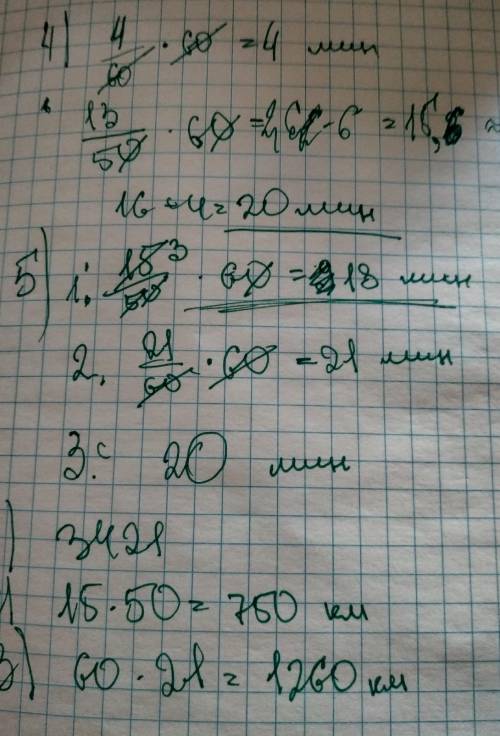 4) 4/60 · 60 = 4 мин
13/50 · 60 = 2,6 · 6 = 15,6 ≈
16 + 4 = 20 мин
5) 1. 15/50 3 · 60 = 18 мин
2. 21/60 · 60 = 21 мин
3. 20 мин
) 3421
15 · 50 = 750 км
3) 60 · 21 = 1260 км